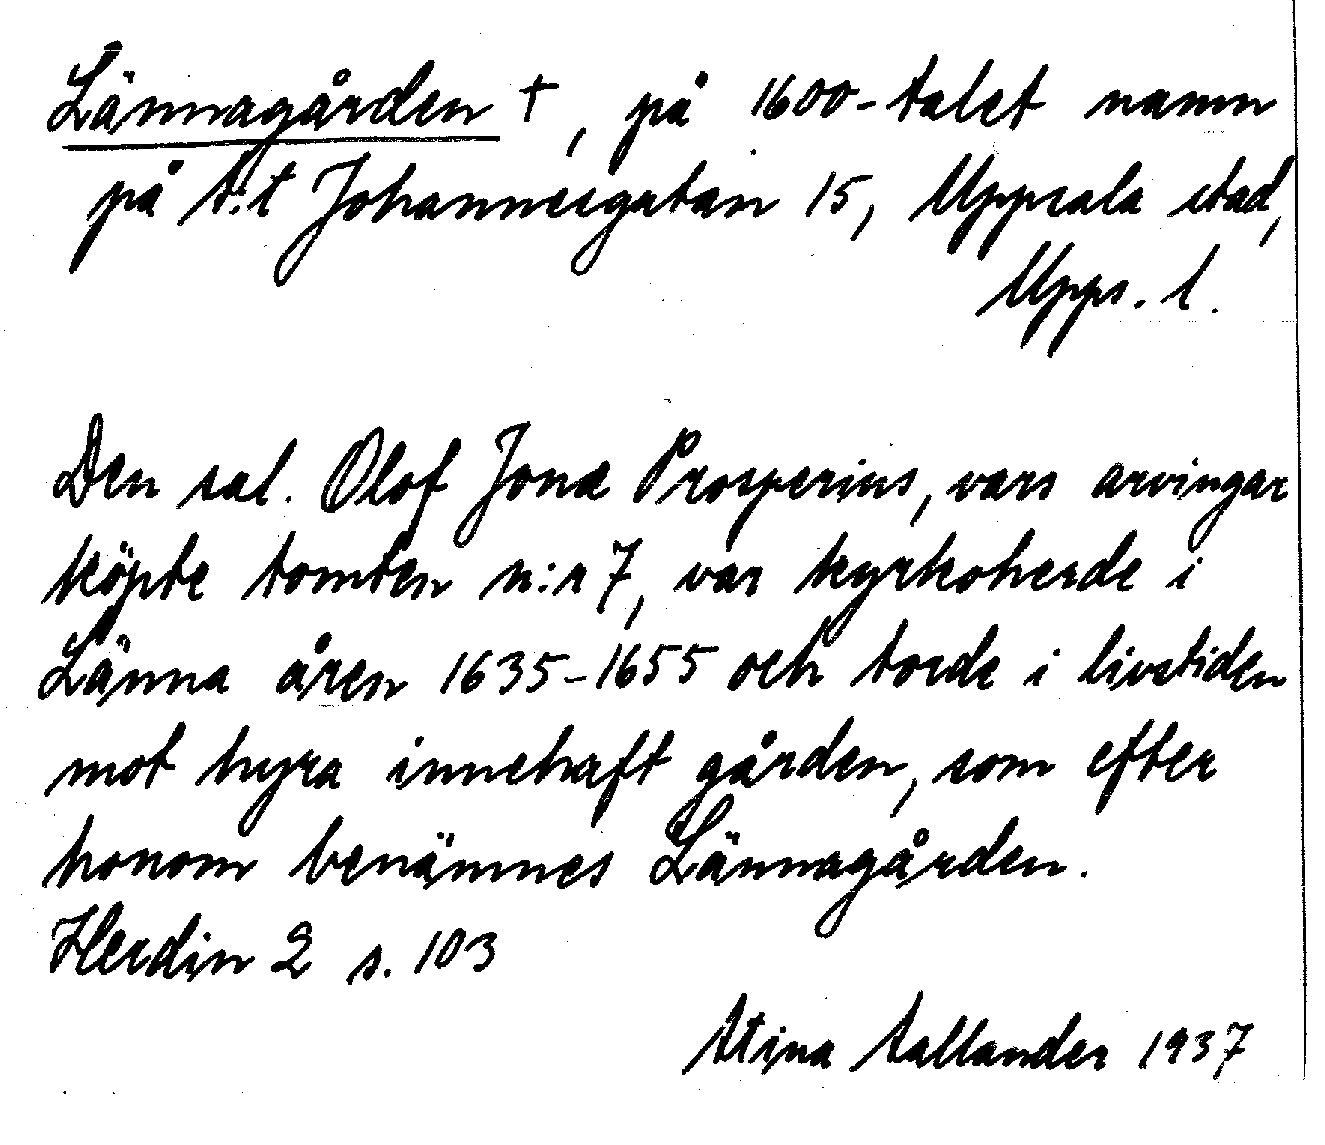 Lännagården †, på 1600-talet namn
på S:t Johannesgatan 15, Uppsala stad,
Upps. l.
Den sal. Olof Jonæ Prosperius, vars arvingar
köpte tomten n:r 7, var kyrkoherde i
Länna åren 1635-1655 och torde i livstiden
mot hyra innehaft gården, som efter
honom benämnes Lännagården.
Herdin 2 s. 103
Stina Sallander 1937